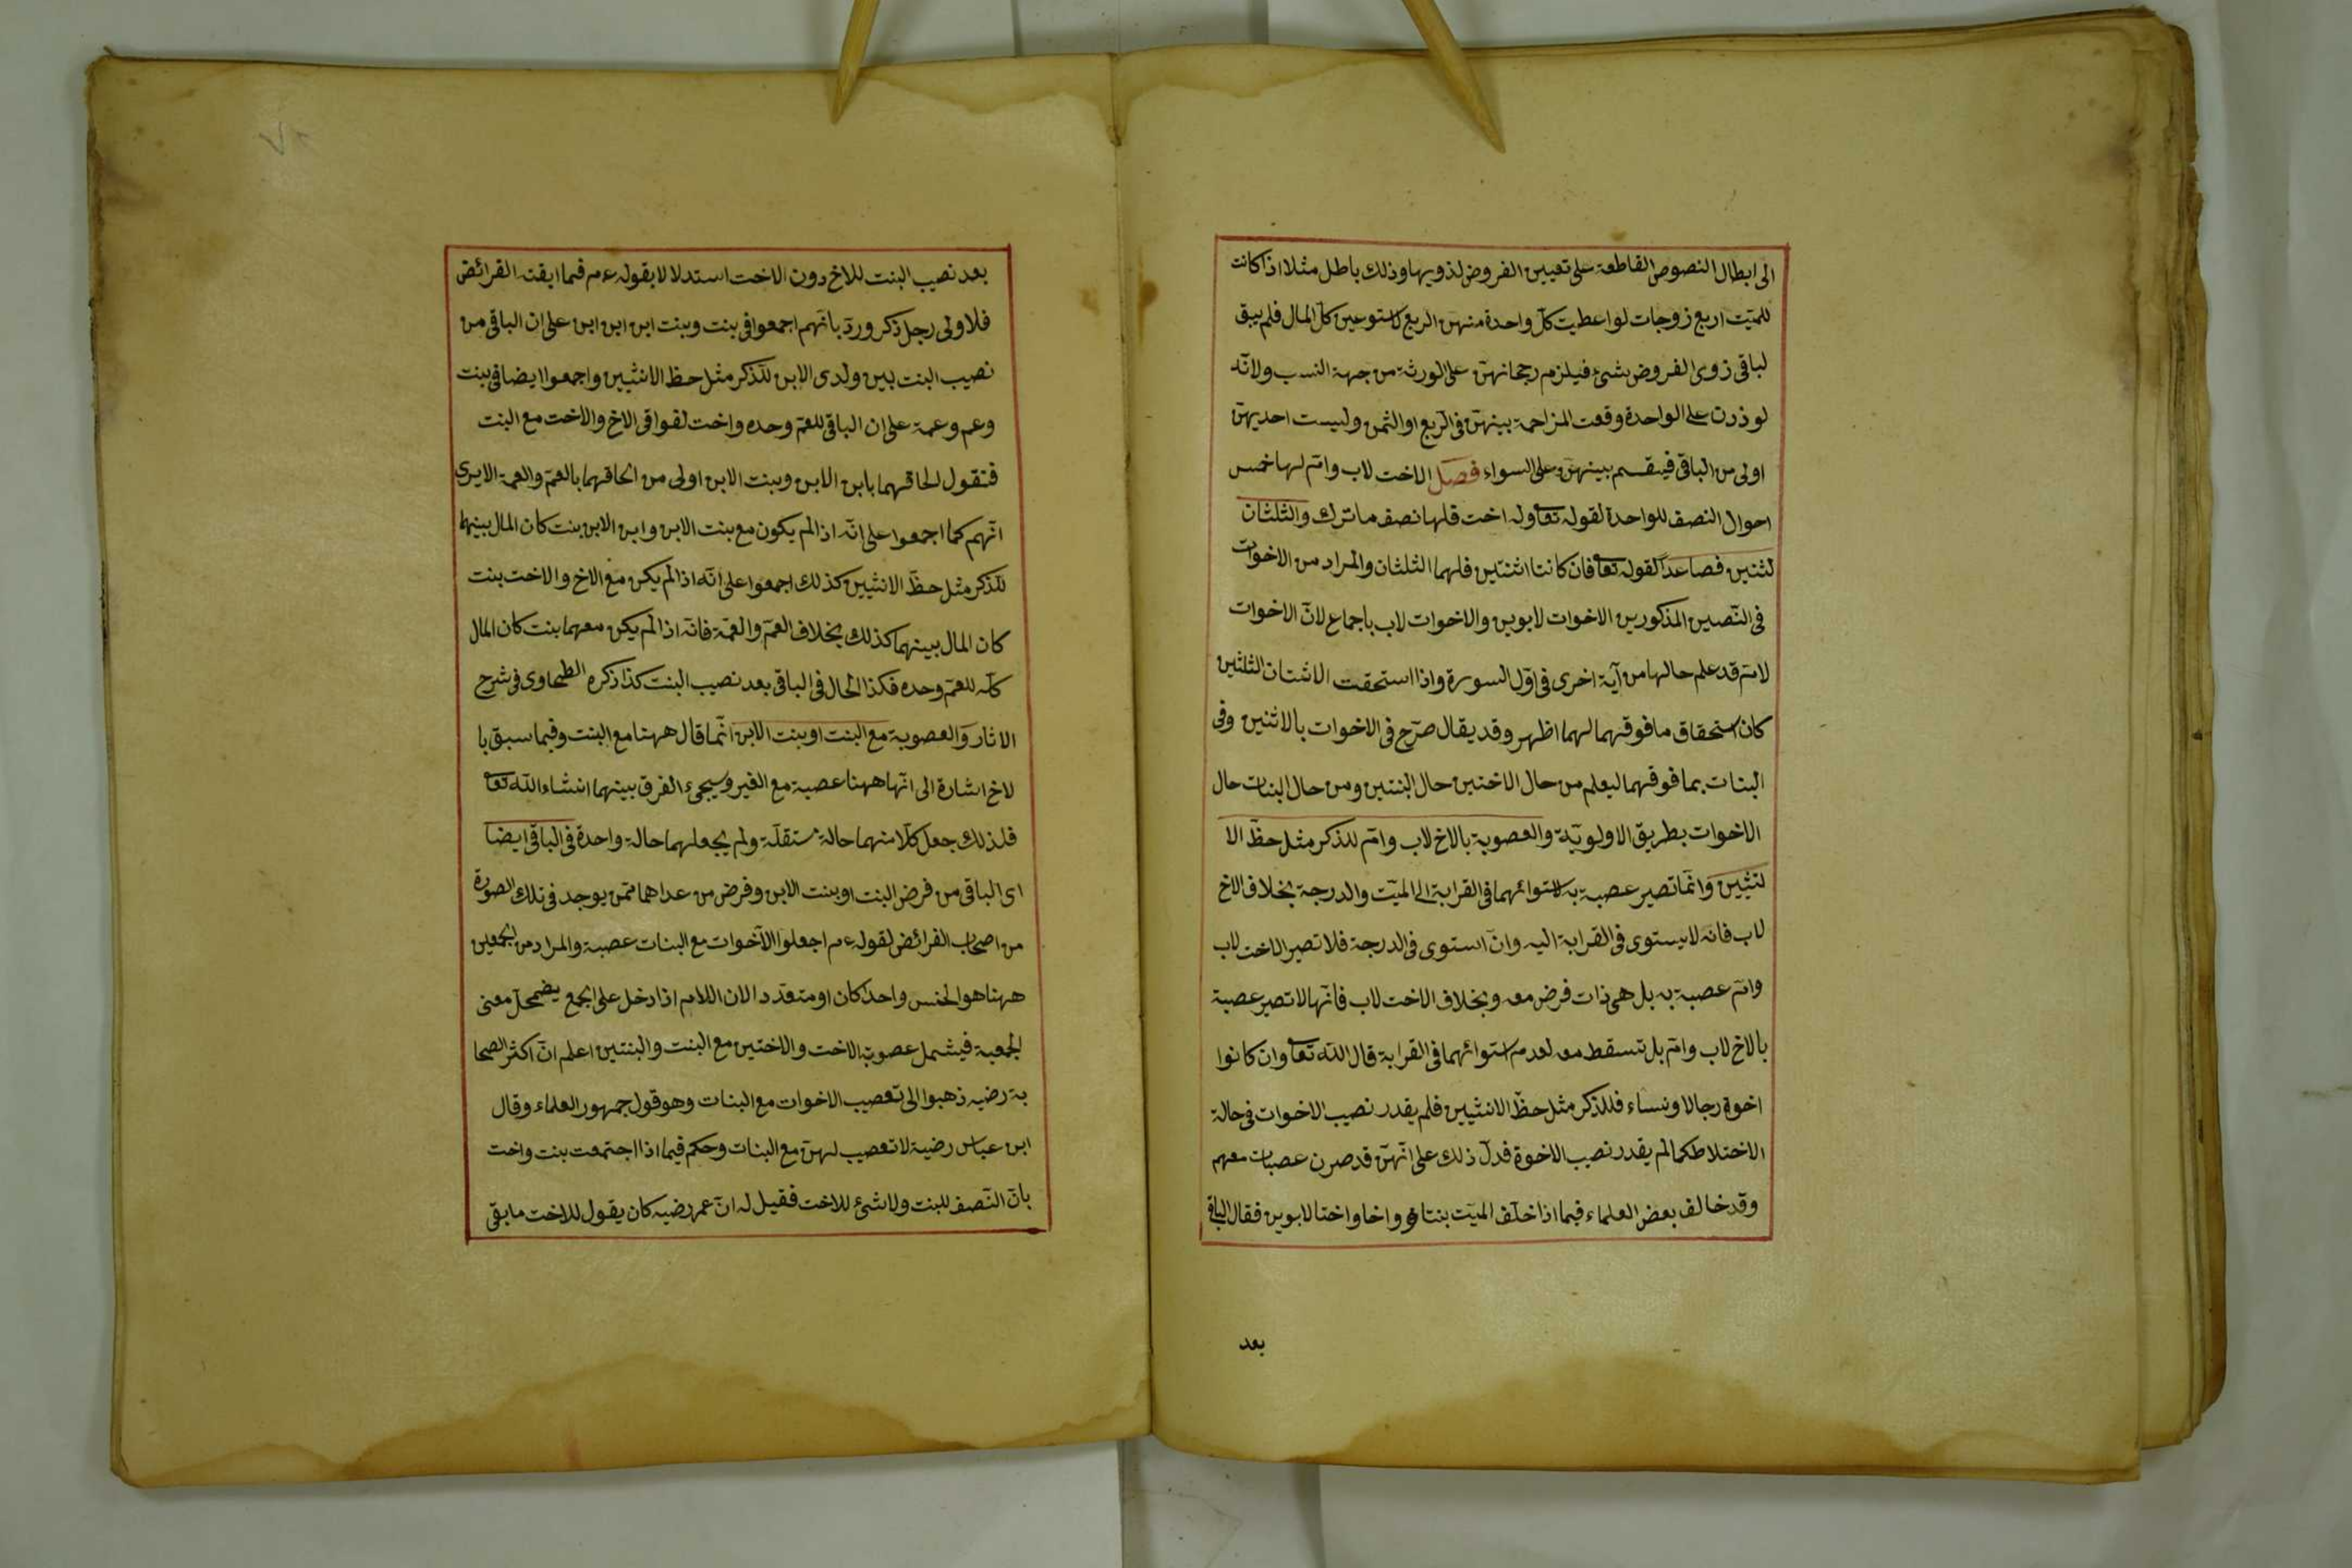 الى ابطال النصوص القاطعة على تعيين الفروض لذويها وذلك باطل مثلا اذا كانت
للميّت اربع زوجات لو اعطيت كلّ واحدة منهنّ الربع لاستوعبن كلّ المال فلم يبق
لباقى زوى الفروض شئ فيلزم رجحانهنّ على الورثة من جهة النسب ولانّه
لو زدن على الواحدة وقعت المزاحمة بينهنّ فى الرّبع او الثمن وليست احديهنّ
اولى من الباقى فيقسم بينهنّ على السواء فصل الاخت لاب وامّ لها خمس
احوال النصف للواحدة لقوله تعا وله اخت فلها نصف ما ترك والثلثان
لثنين فصاعداً لقوله تعا فان كانتا اثنتين فلهما الثلثان والمراد من الاخوات
فى النّصين المذكورين الاخوات لابوين والاخوات لاب باجماع لانّ الاخوات
لامّ قد علم حالها من آية اخرى فى اوّل السورة واذا استحقت الاثنتان الثلثين
كان استحقاق ما فوقهما لهما اظهر وقد يقال صرّح فى الاخوات بالاثنين وفى
البنات بما فوقهما ليعلم من حال الاختين حال البنتين ومن حال البنات حال
الاخوات بطريق الاولويّة والعصوبة بالاخ لاب وامّ للذكر مثل حظّ الا
نثيين وانّما تصير عصبة به لاستوائهما فى القرابة الى الميّت والدرجة بخلاف الاخ
لاب فانّه لا يستوى فى القرابة اليه وانّ استوى فى الدرجة فلا تصير الاخت لاب
وامّ عصبة به بل هى ذات فرض معه وبخلاف الاخت لاب فانّها لا تصير عصبة
بالاخ لاب وامّ بل تسقط معه لعدم استوائهما فى القرابة قال اللّه تعا وان كانوا
اخوة رجالا ونساء فللذكر مثل حظّ الانثيين فلم يقدر نصيب الاخوات فى حالة
الاختلاط كما لم يقدر نصيب الاخوة فدلّ ذلك على انّهنّ قد صرن عصبات معهم
وقد خالف بعض العلماء فيما اذا خلّف الميّت بنتا واخا واختا لابوين فقال الباقى
بعد
بعد نصيب البنت للاخ دون الاخت استدلالا بقوله عم فما ابقته الفرائض
فلاولى رجل ذكر وردّ بانّهم اجمعوا فى بنت وبنت ابن ابن ابن على ان الباقى من
نصيب البنت بين ولدى الابن للذّكر مثل حظ الانثيين واجمعوا ايضا فى بنت
وعم وعمة على ان الباقى للعمّ وحده واخت لفوا فى الاخ والاخت مع البنت
فنقول الحاقهما بابن الابن وبنت الابن اولى من الحاقهما بالعمّ والعمة الا يرى
انّهم كما اجمعوا على انّه اذا لم يكون مع بنت الابن وابن الابن بنت كان المال بينهما
للذّكر مثل حظّ الانثيين كذلك اجمعوا على انّه اذا لم يكن مع الاخ والاخت بنت
كان المال بينهما كذلك بخلاف العمّ والعمّة فانّه اذا لم يكن معهما بنت كان المال
كلّه للعمّ وحده فكذا الحال فى الباقى بعد نصيب البنت كذا ذكره الطحاوى فى شرح
الاثار والعصوبة مع البنت او بنت الابن انّما قال ههنا مع البنت وفيما سبق با
لاخ اشارة الى انّها ههنا عصبة مع الغير وسيجىء الفرق بينهما انشاء اللّه تعا
فلذلك جعل كلّا منهما حالة مستقلّة ولم يجعلهما حالة واحدة فى الباقى ايضا
اى الباقى من فرض البنت او بنت الابن وفرض من عداهما ممّن يوجد فى تلك الصورة
من اصحاب الفرائض لقوله عم اجعلوا الآخوات مع البنات عصبة والمراد من الجمعين
ههنا هو الجنس واحدا كان او متعدّدا لان اللام اذا دخل على الجمع يضمحلّ معنى
الجمعية فيشمل عصوبة الاخت والاختين مع البنت والبنتين اعلم انّ اكثر الصحا
بة رضيه ذهبوا الى تعصيب الاخوات مع البنات وهو قول جمهور العلماء وقال
ابن عباس رضيه لا تعصيب لهنّ مع البنات وحكم فيما اذا اجتمعت بنت واخت
بانّ النّصف للبنت ولا شئ للاخت فقيل له انّ عمر رضيه كان يقول للاخت ما بقى